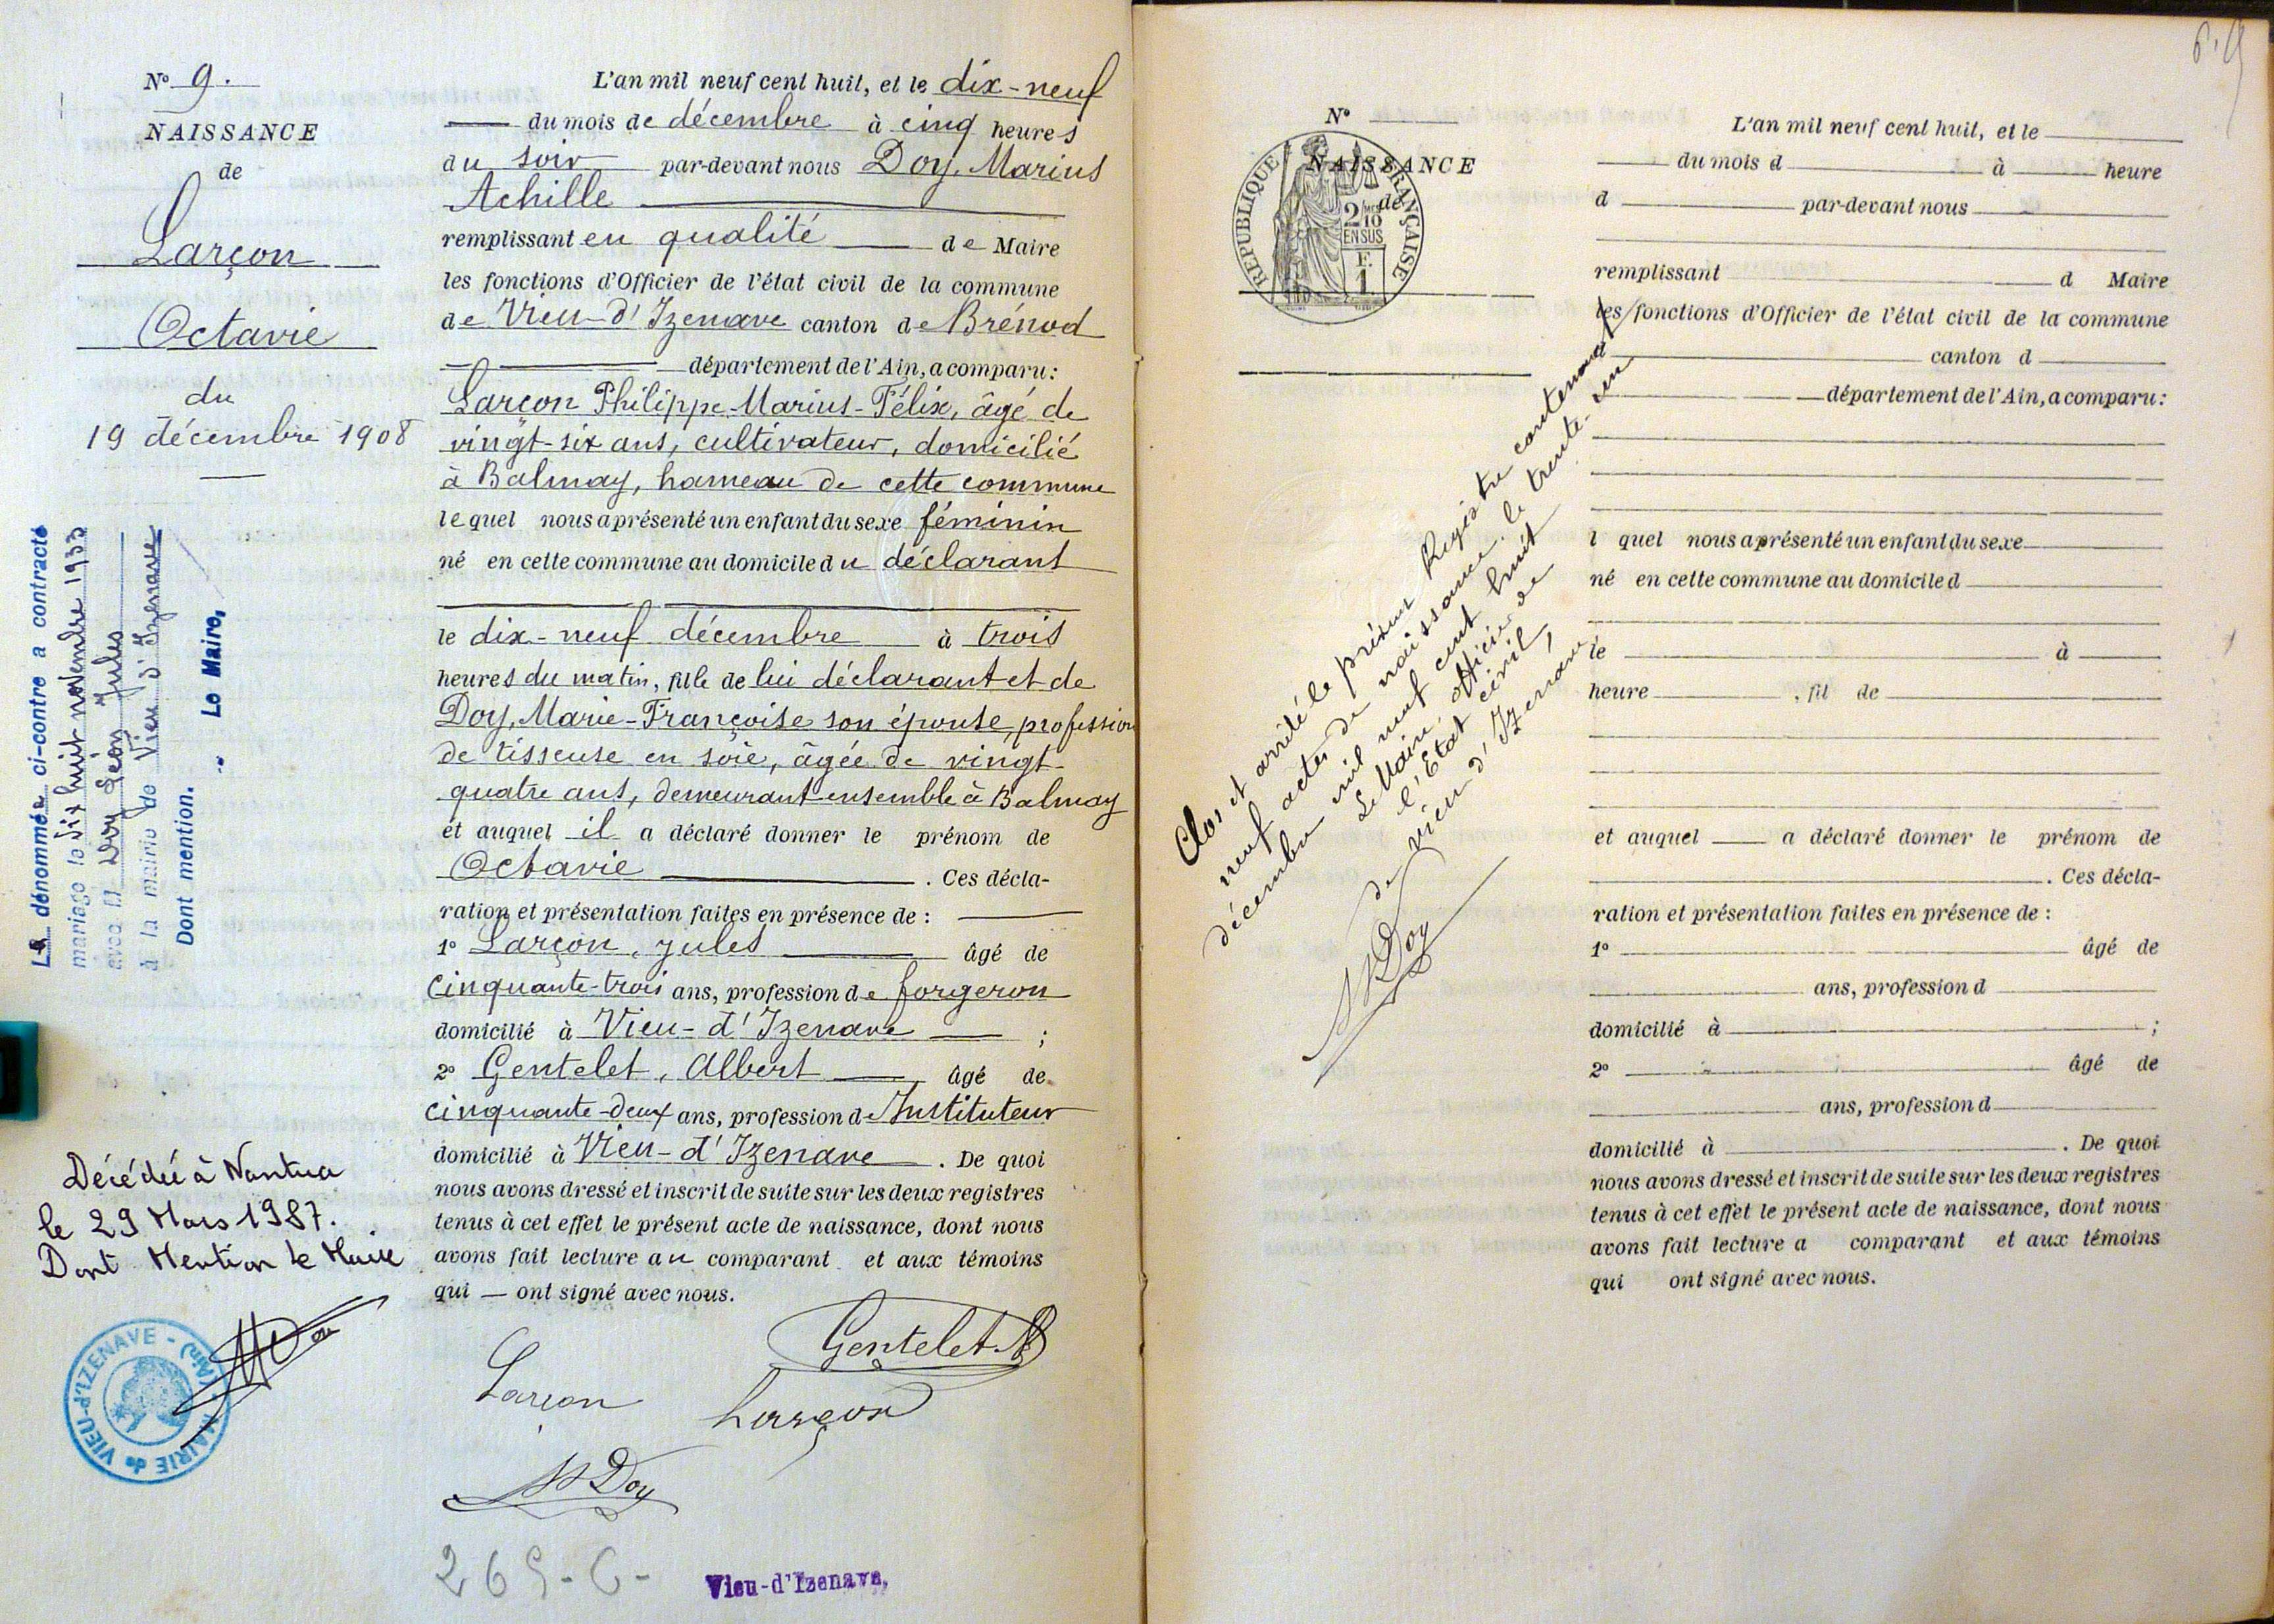 N° 9.
NAISSANCE
de
Larçon
Octavie
du
19 décembre 1908
La dénommée ci-contre a contracté
mariage le dix huit novembre 1933
avec M Doy Léon Jules
à la mairie de Vieu d'Izenave
Dont mention. Le Maire,
Décédée à Nantua
le 29 Mars 1987.
Dont Mention le Maire
MAIRIE de VIEU-D'IZENAVE - (Ain)
L'an mil neuf cent huit, et le dix-neuf
du mois de décembre à cinq heures
du soir par-devant nous Doy, Marius
Achille
remplissant en qualité de Maire
les fonctions d'Officier de l'état civil de la commune
de Vieu-d'Izenave canton de Brénod
département de l'Ain, a comparu :
Larçon Philippe-Marius-Félix, âgé de
vingt-six ans, cultivateur, domicilié
à Balmay, hameau de cette commune
lequel nous a présenté un enfant du sexe féminin
né en cette commune au domicile du déclarant
le dix-neuf décembre à trois
heures du matin, fille de lui déclarant et de
Doy, Marie-Françoise son épouse, profession
de tisseuse en soie, âgée de vingt-
quatre ans, demeurant ensemble à Balmay
et auquel il a déclaré donner le prénom de
Octavie . Ces décla-
ration et présentation faites en présence de :
1° Larçon, Jules âgé de
cinquante-trois ans, profession de forgeron
domicilié à Vieu-d'Izenave ;
2° Gentelet, Albert âgé de
cinquante-deux ans, profession d'Instituteur
domicilié à Vieu-d'Izenave . De quoi
nous avons dressé et inscrit de suite sur les deux registres
tenus à cet effet le présent acte de naissance, dont nous
avons fait lecture au comparant et aux témoins
qui — ont signé avec nous.
Gentelet A
Larçon
Larçon
Doy
Vieu-d'Izenave,
N°
NAISSANCE
de
REPUBLIQUE FRANÇAISE
2/10
EN SUS
F.
1.
Clos et arrêté le présent Registre contenant
neuf actes de naissance, le trente-un
décembre mil neuf cent huit
Le Maire, officier de
l'Etat civil,
de Vieu d'Izenave
Doy
L'an mil neuf cent huit, et le
du mois d à heure
d par-devant nous
remplissant d Maire
les fonctions d'Officier de l'état civil de la commune
d canton d
département de l'Ain, a comparu :
l quel nous a présenté un enfant du sexe
né en cette commune au domicile d
le à
heure , fil de
et auquel a déclaré donner le prénom de
. Ces décla-
ration et présentation faites en présence de :
1° âgé de
ans, profession d
domicilié à ;
2° âgé de
ans, profession d
domicilié à . De quoi
nous avons dressé et inscrit de suite sur les deux registres
tenus à cet effet le présent acte de naissance, dont nous
avons fait lecture a comparant et aux témoins
qui ont signé avec nous.